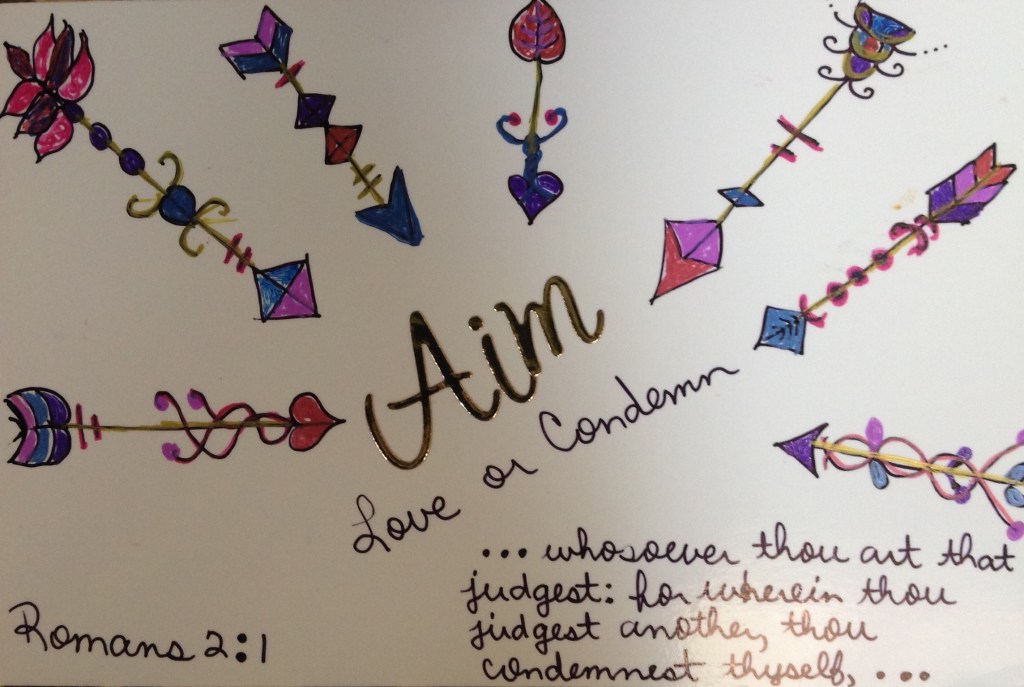 Aim
Love or Condemn
... whosoever thou art that
judgest: for wherein thou
judgest another, thou
condemnest thyself, ...
Romans 2:1